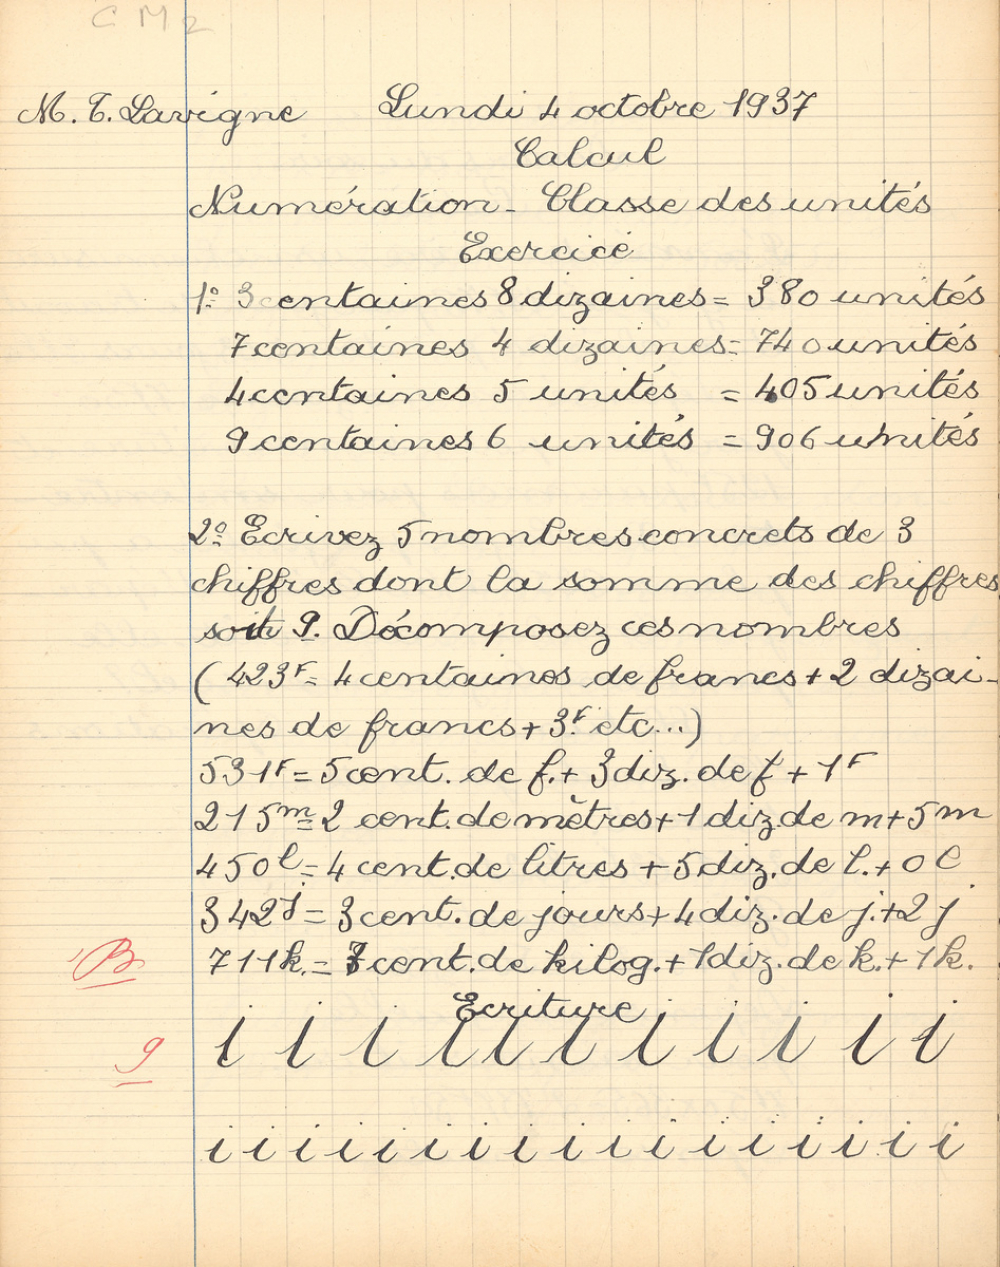 CM2
M. T. Lavigne Lundi 4 octobre 1937
Calcul
Numération - Classe des unités
Exercice
1º 3 centaines 8 dizaines = 380 unités
7 centaines 4 dizaines = 740 unités
4 centaines 5 unités = 405 unités
9 centaines 6 unités = 906 unités
2º Ecrivez 5 nombres concrets de 3
chiffres dont la somme des chiffres
soit 9. Décomposez ces nombres
(423F = 4 centaines de francs + 2 dizai-
nes de francs + 3F etc...)
531F = 5 cent. de f. + 3 diz. de f + 1F
215m = 2 cent. de mètres + 1 diz. de m + 5m
450l = 4 cent. de litres + 5 diz. de l. + 0l
342j = 3 cent. de jours + 4 diz. de j. + 2j
B 711k. = 7 cent. de kilog. + 1 diz. de k. + 1k.
Ecriture
9 i i i i i i i i i i i
i i i i i i i i i i i i i i i i i